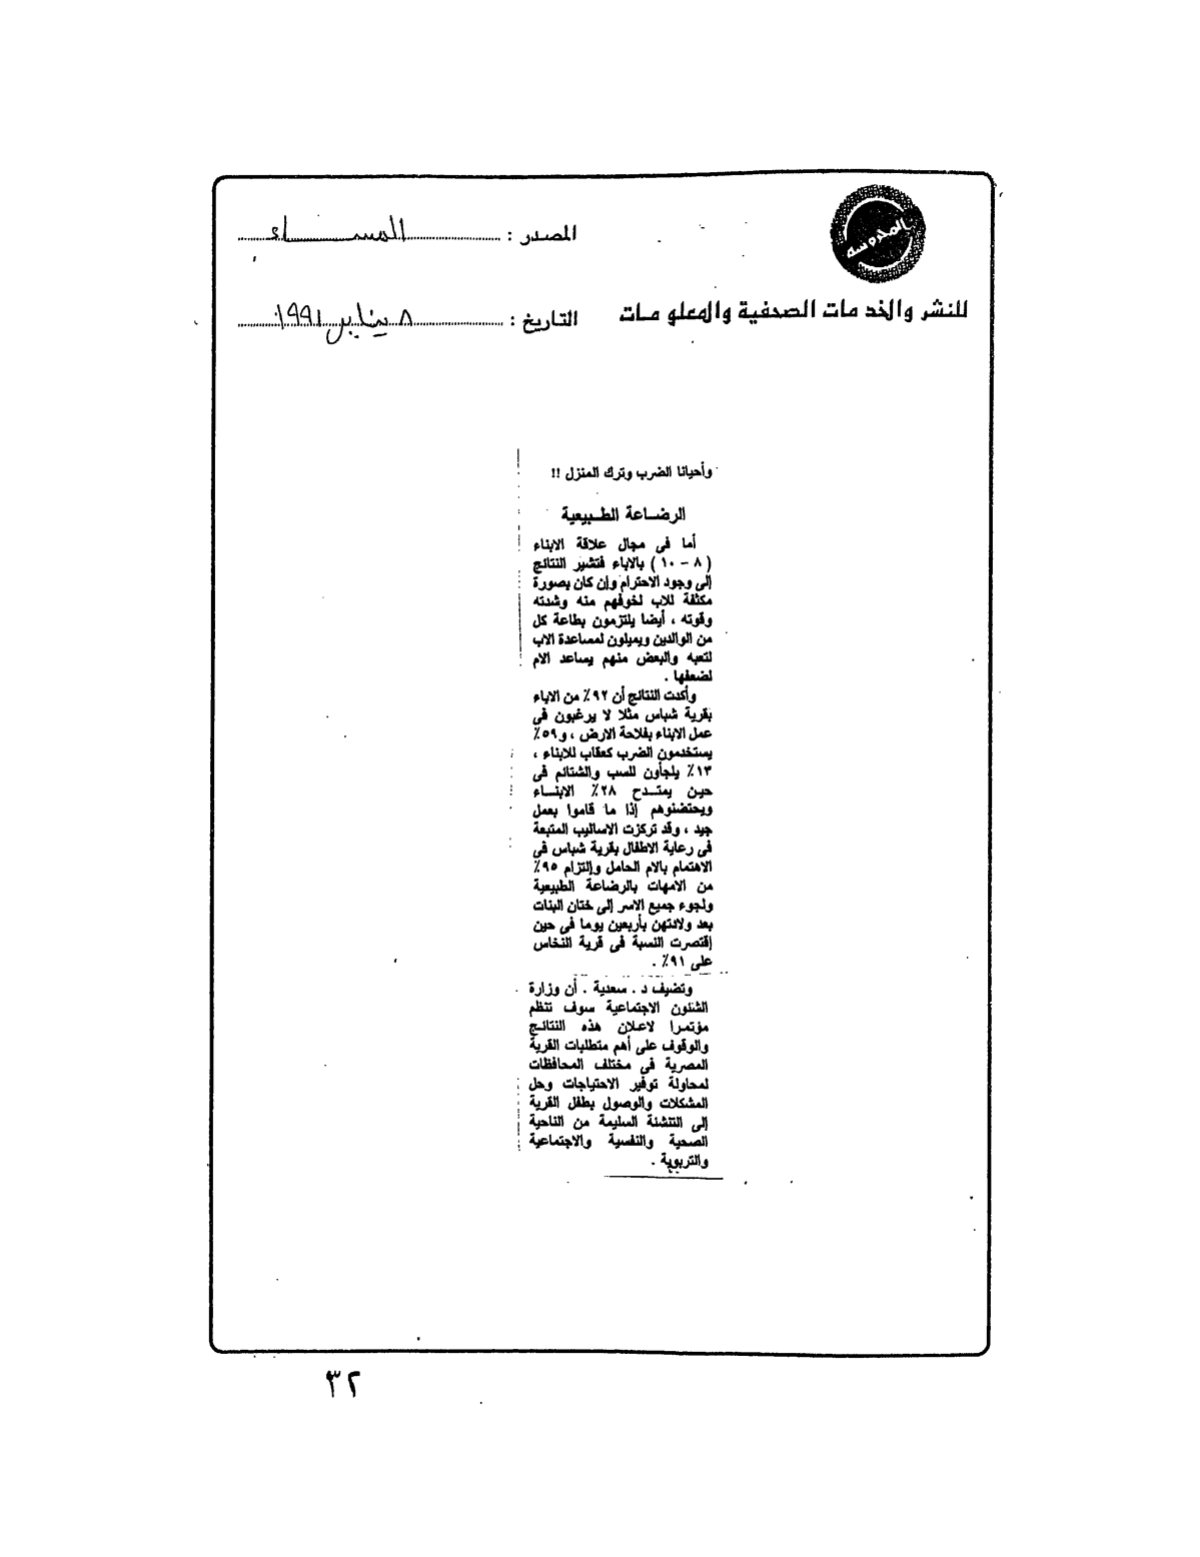 المحروسه
المصدر : المساء
للنشر والخدمات الصحفية والمعلومات
التاريخ : ٨ يناير ١٩٩١
وأحيانا الضرب وترك المنزل !!
الرضاعة الطبيعية
أما فى مجال علاقة الابناء
( ٨ - ١٠ ) بالاباء فتشير النتائج
إلى وجود الاحترام وإن كان بصورة
مكثفة للاب لخوفهم منه وشدته
وقوته ، أيضا يلتزمون بطاعة كل
من الوالدين ويميلون لمساعدة الاب
لتعبه والبعض منهم يساعد الام
لضعفها .
وأكدت النتائج أن ٩٢٪ من الاباء
بقرية شباس مثلا لا يرغبون فى
عمل الابناء بفلاحة الارض ، و٥٩٪
يستخدمون الضرب كعقاب للابناء ،
١٣٪ يلجأون للسب والشتائم فى
حين يمتدح ٢٨٪ الابناء
ويحتضنوهم إذا ما قاموا بعمل
جيد ، وقد تركزت الاساليب المتبعة
فى رعاية الاطفال بقرية شباس فى
الاهتمام بالام الحامل وإلتزام ٩٥٪
من الامهات بالرضاعة الطبيعية
ولجوء جميع الاسر إلى ختان البنات
بعد ولادتهن بأربعين يوما فى حين
إقتصرت النسبة فى قرية النخاس
على ٩١٪ .
وتضيف د . سعدية . أن وزارة
الشئون الاجتماعية سوف تنظم
مؤتمرا لاعلان هذه النتائج
والوقوف على أهم متطلبات القرية
المصرية فى مختلف المحافظات
لمحاولة توفير الاحتياجات وحل
المشكلات والوصول بطفل القرية
إلى التنشئة السليمة من الناحية
الصحية والنفسية والاجتماعية
والتربوية .
٣٢